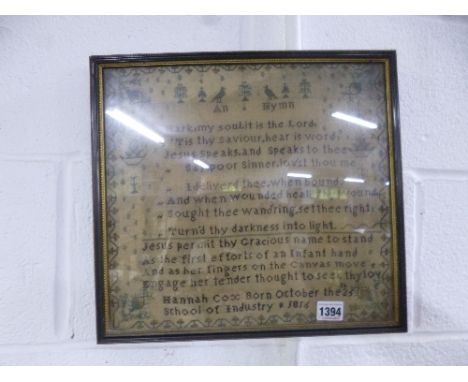 An Hymn
Hark my soul it is the Lord,
'Tis thy Saviour, hear is word,
Jesus Speaks, and Speaks to thee
poor Sinner, lov'st thou me
I deliver'd thee, when bound,
And when wounded heal'd wound
Sought thee wandring, set thee right
Turn'd thy darkness into light.
Jesus permit thy Gracious name to stand
As the first efforts of an Infant hand
And as her fingers on the Canvas move
Engage her tender thought to seek thy lov
Hannah Cox Born October the 25
School of Industry 1816
1394